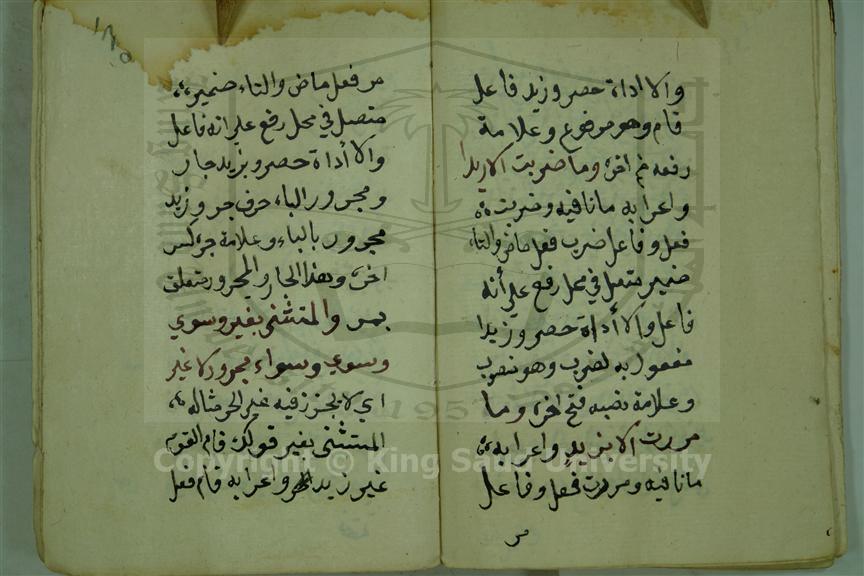 والا اداة حصر وزيد فاعل
قام وهو مرفوع وعلامة
رفعه ضم اخره وما ضربت الا زيدا
واعرابه ما نافيه وضربت
فعل وفاعل ضرب فعل ماض والتاء
ضمير متصل في محل رفع على أنه
فاعل والا أداة حصر وزيدا
مفعول به لضرب وهو منصوب
وعلامة نصبه فتح اخره وما
مررت الا بزيد واعرابه
ما نافيه ومررت فعل وفاعل
مر
مر فعل ماض والتاء ضمير
متصل في محل رفع على انه فاعل
والا أداة حصر وبزيد جار
ومجرور الباء حرف جر وزيد
مجرور بالباء وعلامة جره كسر
اخره وهذا الجار والمجرور متعلق
بمر والمستثنى بغير وسوي
وسوي وسواء مجرور لا غير
اي لا يجوز فيه غير الجر مثاله
المستثنى بغير قولك قام القوم
غير زيد واعرابه قام فعل
Copyright © King Saud University
1957